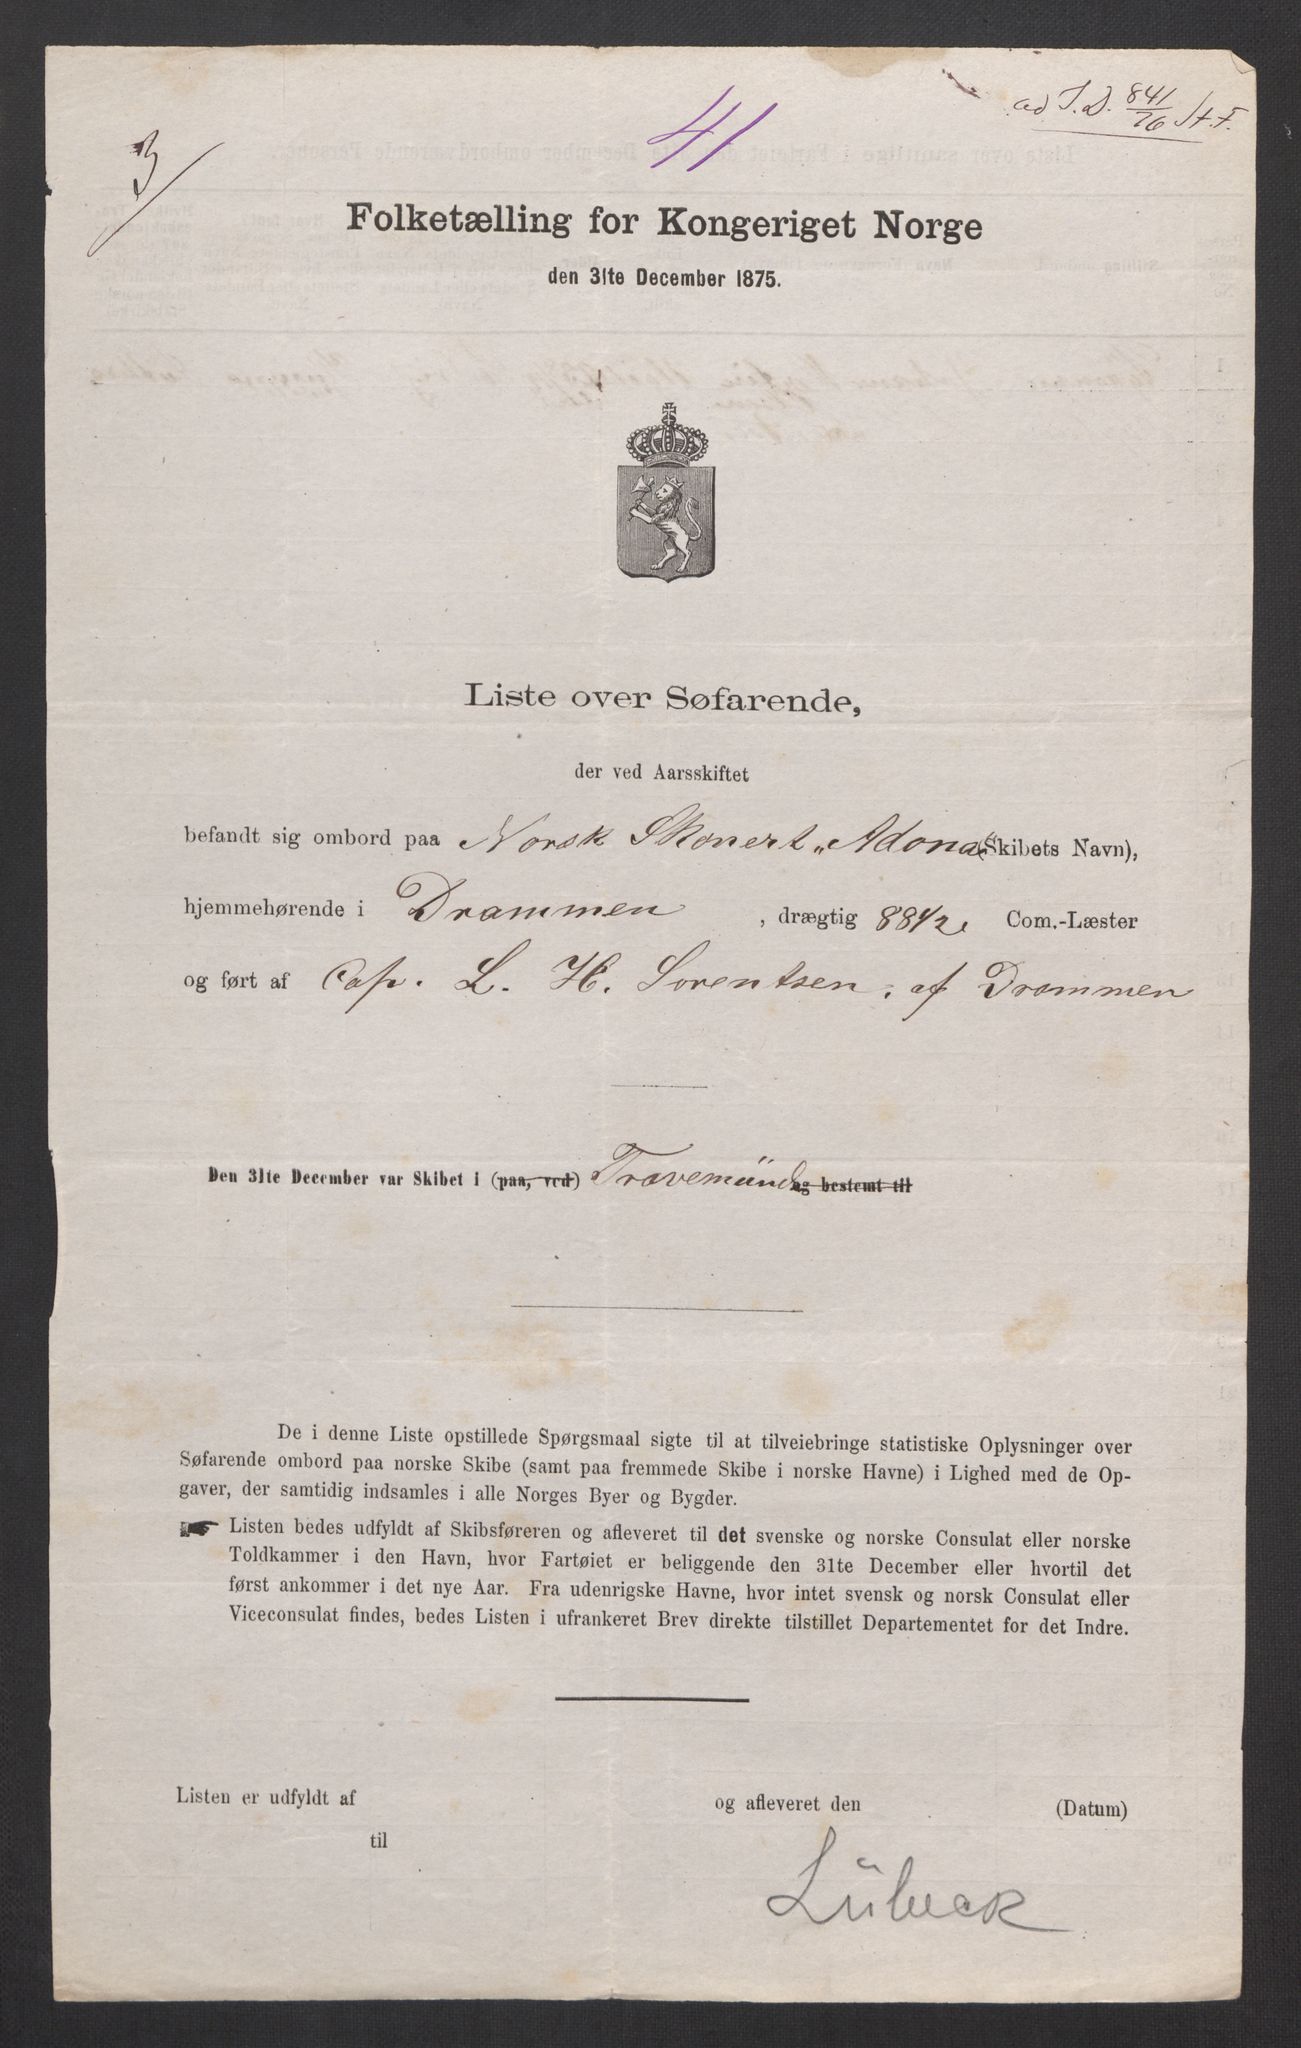 ad I. D. 841/76 St. F.
41
3/
Folketælling for Kongeriget Norge
den 31te December 1875.
Liste over Søfarende,
der ved Aarsskiftet
befandt sig ombord paa Norsk Skonert „Adona“ (Skibets Navn),
hjemmehørende i Drammen , drægtig 88 1/2 Com.-Læster
og ført af Cap. L. H. Sorentsen. af Drammen
Den 31te December var Skibet i (paa, ved) Travemünde og bestemt til
De i denne Liste opstillede Spørgsmaal sigte til at tilveiebringe statistiske Oplysninger over
Søfarende ombord paa norske Skibe (samt paa fremmede Skibe i norske Havne) i Lighed med de Op-
gaver, der samtidig indsamles i alle Norges Byer og Bygder.
Listen bedes udfyldt af Skibsføreren og afleveret til det svenske og norske Consulat eller norske
Toldkammer i den Havn, hvor Fartøiet er beliggende den 31te December eller hvortil det
først ankommer i det nye Aar. Fra udenrigske Havne, hvor intet svensk og norsk Consulat eller
Viceconsulat findes, bedes Listen i ufrankeret Brev direkte tilstillet Departementet for det Indre.
Listen er udfyldt af og afleveret den (Datum)
til
Lübeck